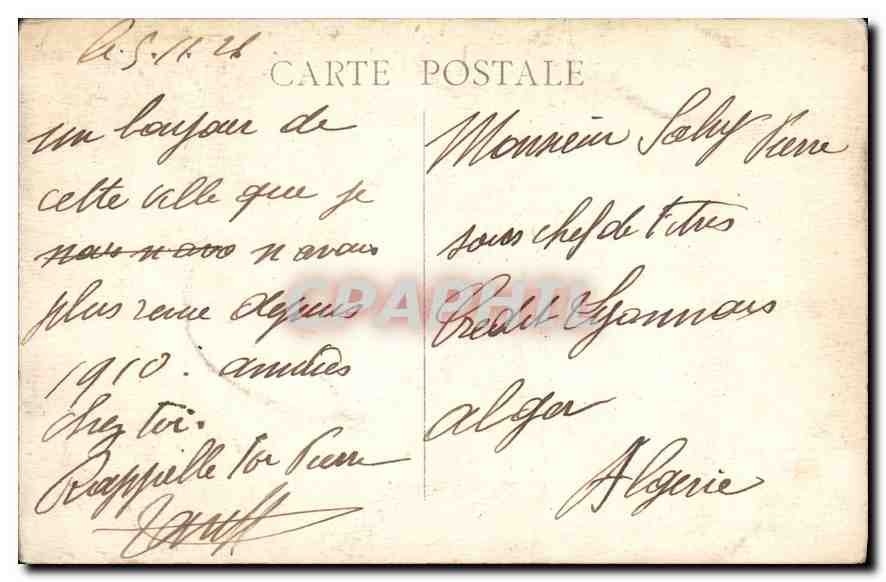 5.11.21
CARTE POSTALE
un bonjour de
cette ville que je
n avais
plus revue depuis
1910. amitiés
chez toi.
Rappelle toi Pierre
Monsieur Pierre
sous chef de titres
Crédit Lyonnais
alger
Algerie
CPAPHIL